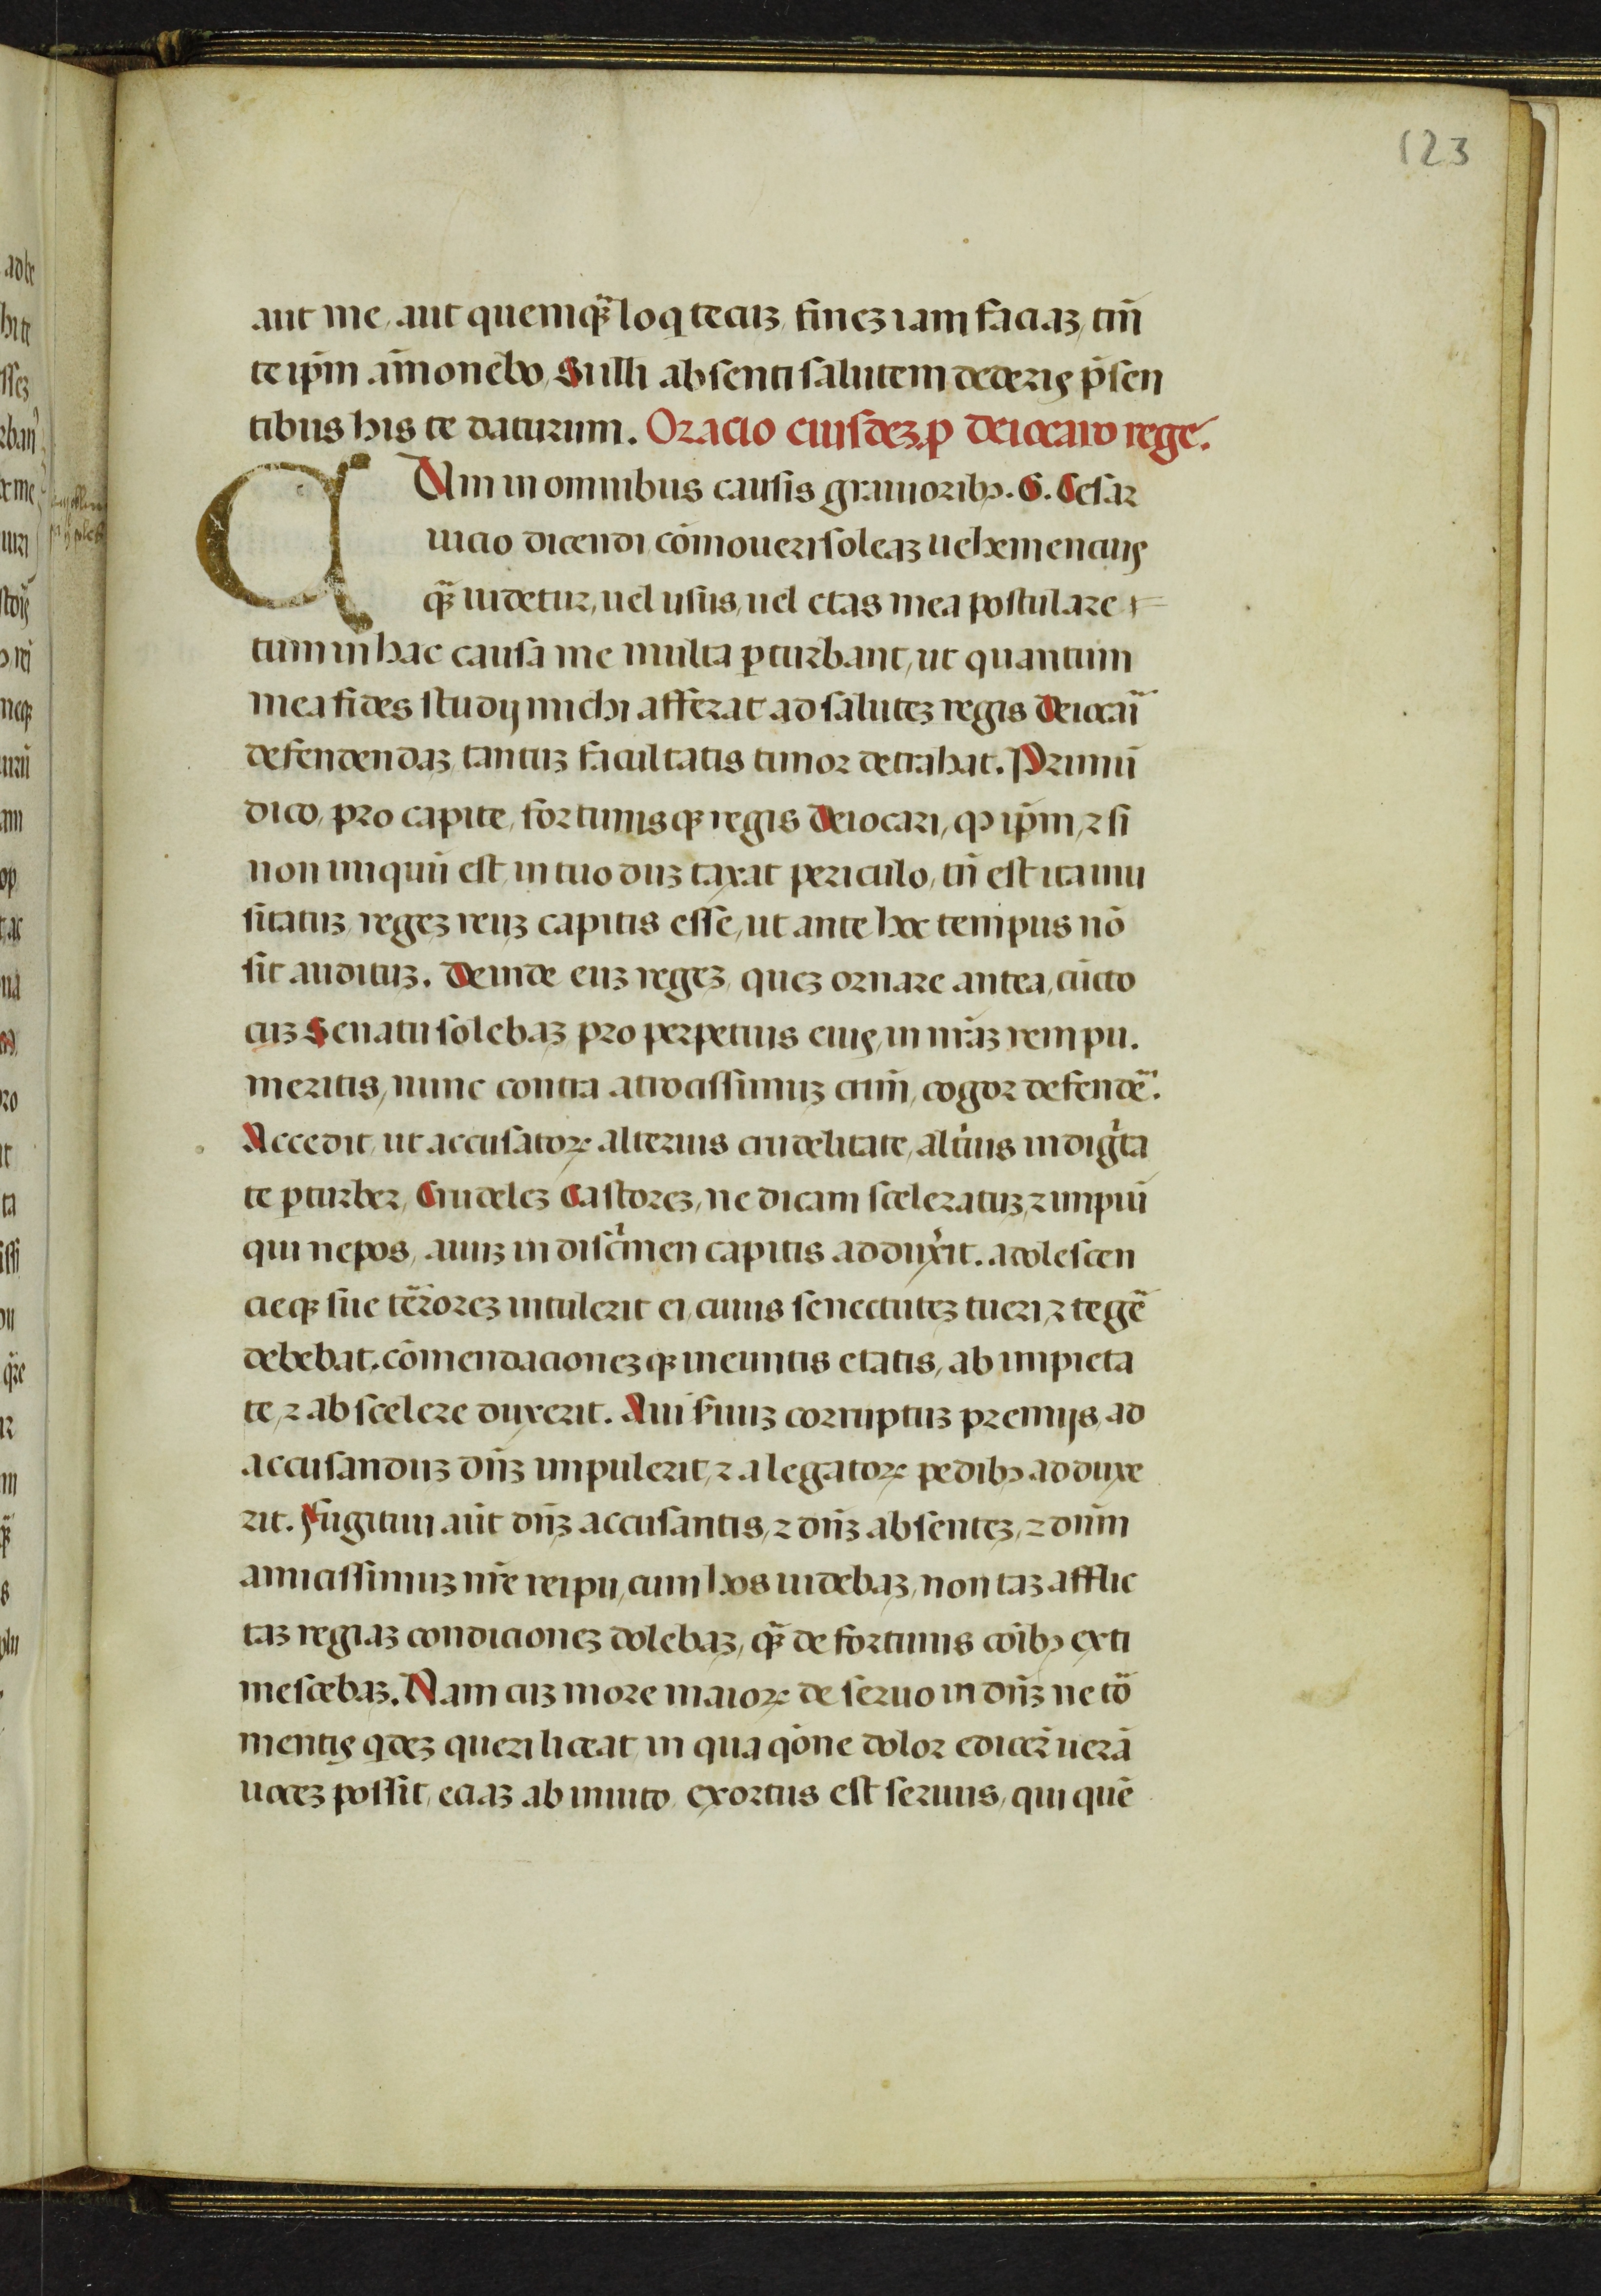 123
aut me, aut quemqꝫ̃ loq̣ tecuꝫ, fineꝫ iam faciaꝫ, tm̄
te ip̄m am̄onebo, Sulli absenti salutem dederis p̄sen
tibus his te daturum. Oracio eiusdeꝫ ꝓ deiocaro rege.
C Um in omnibus causis grauioribꝫ. G. Cesar
inicio dicendi cōmoueri soleaꝫ uehemencius
qꝫ̃ uidetur, uel usus, uel etas mea postulare
tum in hac causa me multa ꝑturbant, ut quantum
mea fides studij michi afferat ad saluteꝫ regis deiocari
defendendaꝫ tantuꝫ facultatis timor detrahat. Primū
dico, pro capite, fortunisqꝫ regis deiocari, qͻ ip̄m, ⁊ si
non iniquū est, in tuo duꝫ taxat periculo, tn̄ est ita inu
sitatuꝫ, regeꝫ reuꝫ capitis esse, ut ante hoc tempus nō
sit audituꝫ. Deinde euꝫ regeꝫ, queꝫ ornare antea, cūcto
cuꝫ Senatu solebaꝫ pro perpetuis eius, in nr̄aꝫ rem pu.
meritis, nunc contra atrocissimuꝫ crim̄, cogor defendē.
Accedit, ut accusatoꝝ alterius crudelitate, alt̄ius indigͥta
te ꝑturber, Crudeleꝫ Castoreꝫ, ne dicam sceleratuꝫ, ⁊ impiū
qui nepos, auuꝫ in discͥmen capitis adduxͥit. adolescen
cieqꝫ sue t̄roreꝫ intulerit ei, cuius senectuteꝫ tueri, ⁊ tegē
debebat, cōmendacioneꝫqꝫ ineuntis etatis, ab impieta
te, ⁊ ab scelere duxerit. Aui s̄uuꝫ corruptuꝫ premijs, ad
accusanduꝫ dn̄ꝫ impulerit, ⁊ a legatoꝝ pedibꝫ adduxe
rit. Fugitiui aūt dn̄ꝫ accusantis, ⁊ dn̄ꝫ absenteꝫ, ⁊ dn̄m
amicissimuꝫ nr̄e reipu, cum hos uidebaꝫ, non taꝫ afflic
taꝫ regiaꝫ condicioneꝫ dolebaꝫ, qꝫ̃ de fortunis cōibꝫ exti
mescebaꝫ. Nam cuꝫ more maioꝝ de seruo in dn̄ꝫ ne tō
mentis q̣deꝫ queri liceat, in qua qōne dolor edicer̄ uerā
uoceꝫ possit, eciaꝫ ab inuito, exortus est seruus, qui quē